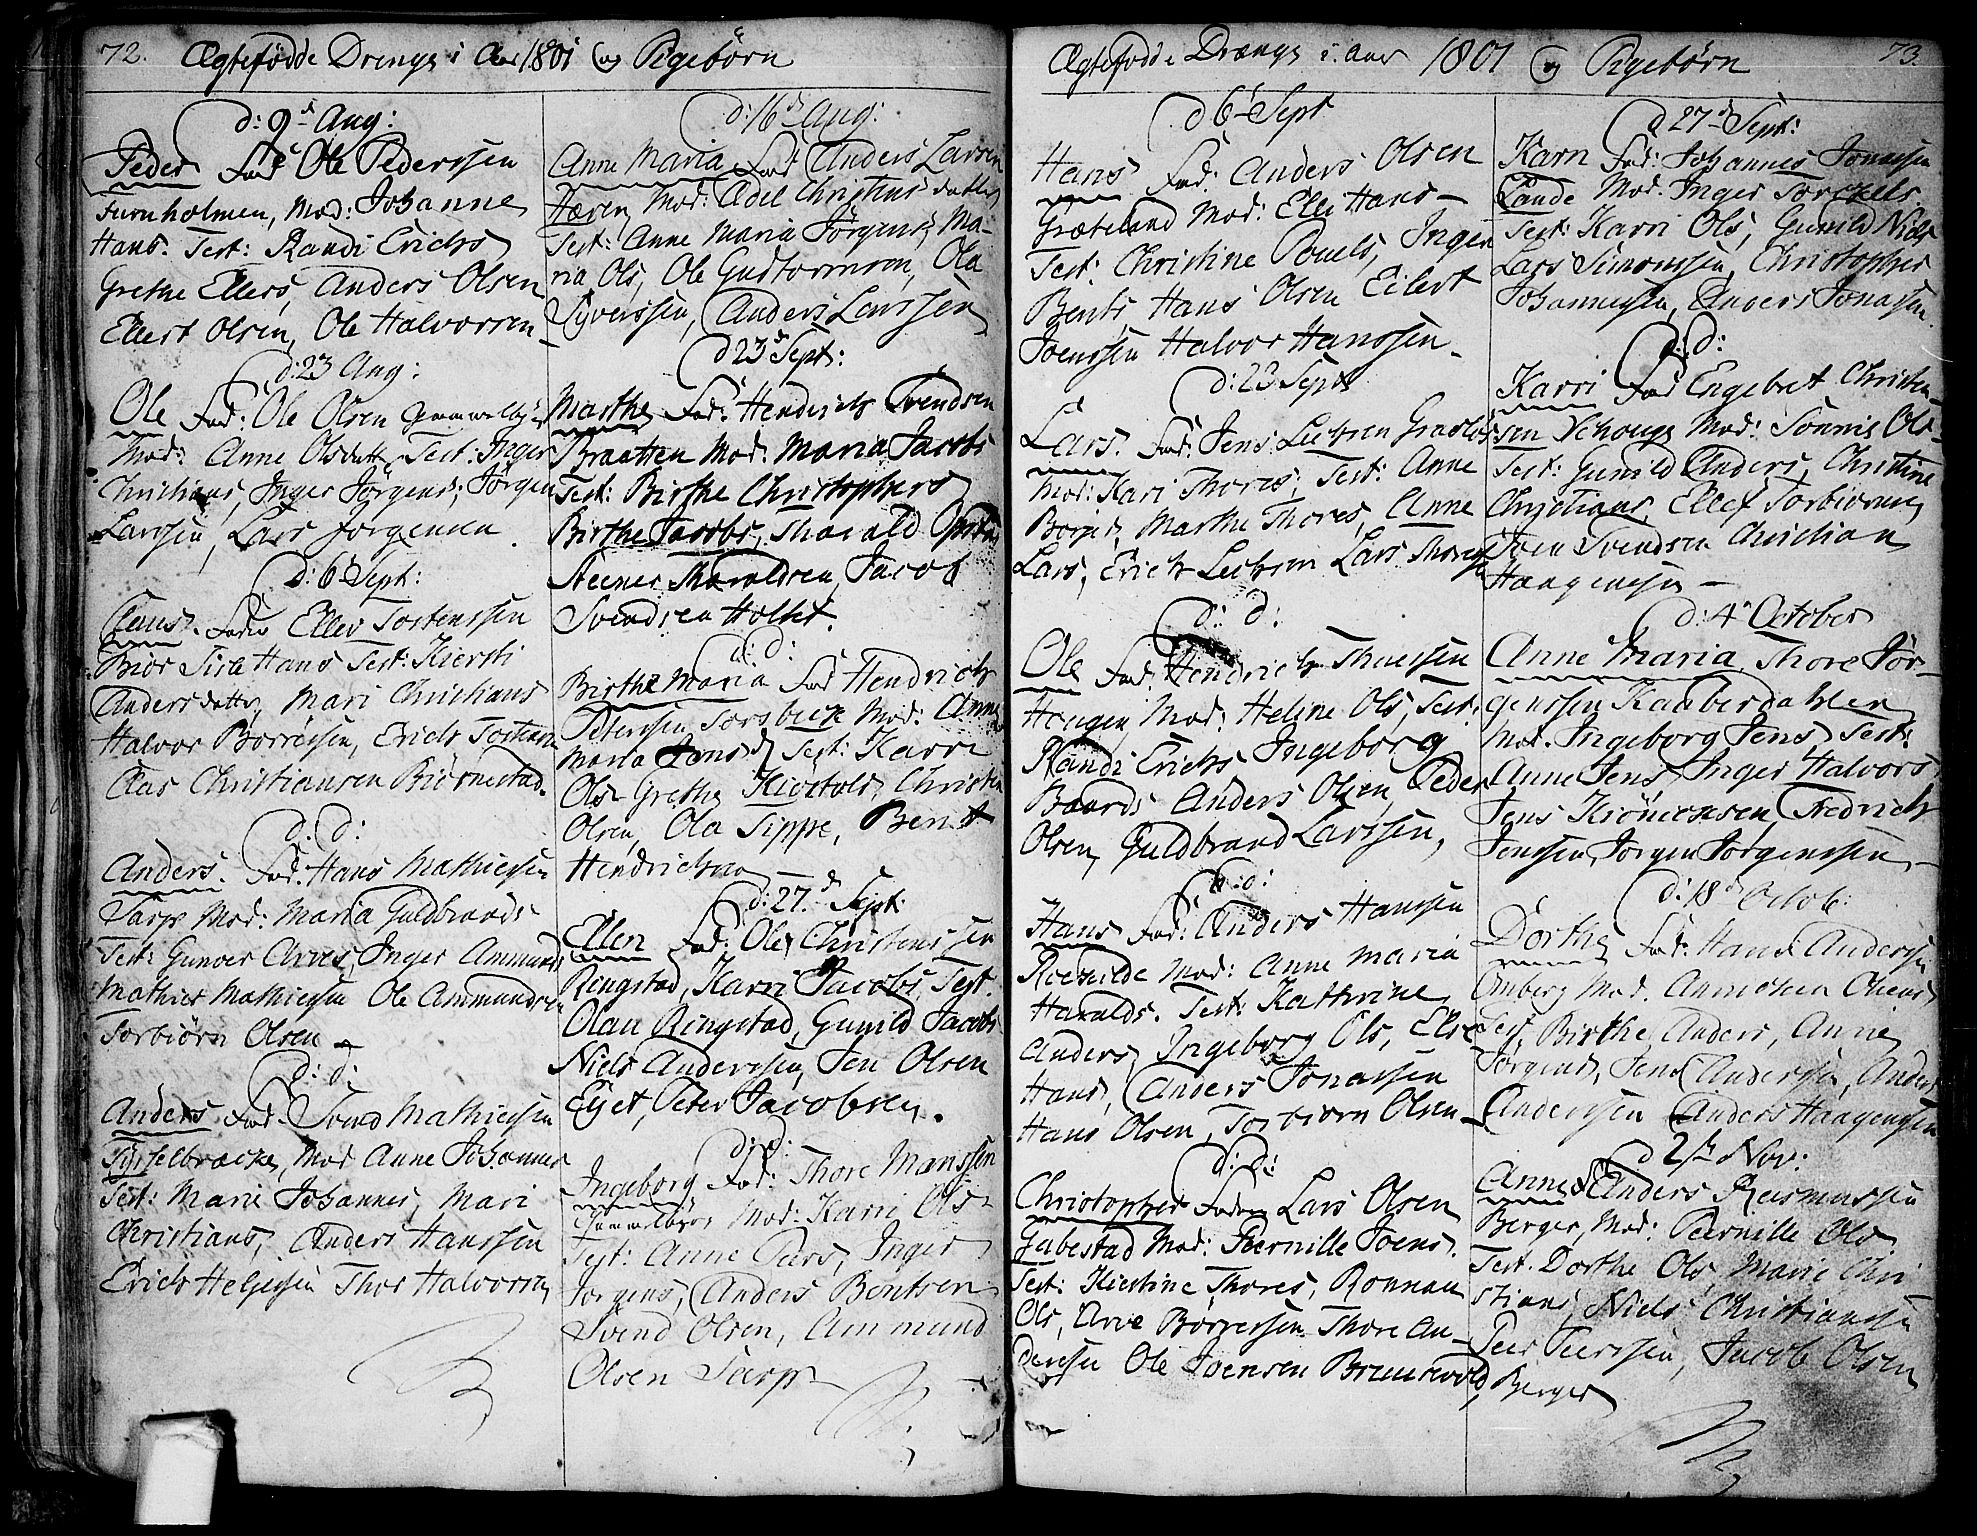 72. Ægtefødde Drenge i Aar 1801 og Pigebørn
d: 9d Aug:
Peder Fad: Ole Pederssen
Furnholmen, Mod: Johanne
Hans. Test: Randi Erichs
Grethe Ellers, Anders Olsen
Ellert Olsen, Ole Halvorsen
d: 23 Aug:
Ole Fad: Ole Olsen
Mod: Anne Olsdatt, Test: Inger
Christians, Inger Jørgens, Jørgen
Larssen, Lars Jørgensen
d: 6 Sept:
Claus. Fader Ellev Tostenssen
Biór Siri Hans Test: Kiersti
Andersdatter, Mari Christians
Halvor Borresen, Erich Tostens
Claus Christiansen Biørnestad.
d: d:
Anders. Fad. Hans Mathiesen
Tarp Mod: Maria Guldbrands
Test: Gunver Arves, Inger Ammunds
Mathies Mathiesen Ole Ammundsen
Torbiørn Olsen
d: d:
Anders Fad: Svend Mathiesen
Mod Anne Johannes
Test: Marie Johannes, Mari
Christians, Anders Hanssen
Erich Helgesen Thor Halvorsen
d: 16d Aug:
Anne Maria Fad Anders Larsen
Hæren, Mod: Adel Christiansdatter
Test: Anne Maria Jørgens, Ma-
ria Ols, Ole Guttormsen, Ola
Syverssen, Anders Larssen
d 23d Sept:
Marthe Fad: Hendrich Svendsen
Braatten Mod: Maria Jacobs
Test: Birthe Christophers
Birthe Jacobs, Tharald
Steener Tharaldsen, Jacob
Svendsen Holtet.
d: d:
Birthe Maria Fad Hendrich
Peterssen Torsbek Mod: Anne
Maria Jens Test: Karri
Ols Grethe Kiostolds Christen
Olsen, Ola Sippe, Bent
Hendrichsen
d: 27. Sept:
Ellen Fad: Ole Christenssen
Ringstad, Karri Jacobs Test.
Olau Ringstad, Gunild Jacobs
Niels Anderssen, Jen Olsen
Eyet, Peter Jacobsen.
d: d:
Ingeborg Fad: Thore Manssen
Mod: Karri Ols
Test: Anne Pärs, Inger
Jørgens, Anders Bentsen
Svend Olsen, Ammund
Olsen Tarp
Ægtefødde Drænge i Aar 1801 og Pigebørn 73.
d 6 Sept
Hans Fad: Anders Olsen
Græteland Mod: Elle Hans
Test: Christine Pouels, Inger
Bents Hans Olsen Eilert
Joenssen Halvor Hanssen
d: 23 Sept
Lars. Fad: Jens
Mod: Kari Thores, Test: Anne
Borges, Marthe Thores, Anne
Lars, Erich Lars
d: d:
Ole Fad: Hendrich Thuessen
Haugen, Mod: Heline Ols, Test:
Randi Erichs Ingeborg
Baards Anders Olsen, Peder
Olsen, Guldbrand Larssen,
d: d:
Hans Fad: Anders Hanssen
Roesilde Mod: Anne Maria
Haralds. Test: Kathrine
Anders, Ingeborg Ols, Else
Hans, Anders Jonassen
Hans Olsen, Torbiørn Olsen
d: d:
Christopher Faderen Lars Olsen
Gabestad Mod: Peernille Joens.
Test: Kirstine Thores, Ronnau
Ols, Arve Børresen Thore An-
dersen Ole Joensen Bruusvold,
d 27d Sept:
Karn Fad: Johannes Jonassen
Lande Mod. Inger Torckels
Test: Karri Ols, Gunild Niels
Lars Simonssen, Christopher
Johannesen, Anders Jonassen.
d: d:
Karri Fad Engebret Christen-
sen Schouge Mod: Tønnis Ols-
Test: Gunild Anders, Christine
Christians, Ellef Torbiørnsen
Joen Svendsen Christian
Haagenssen
d: 4d October
Anne Maria, Thore Jør-
genssen Kaaberdahlen
Mod. Ingeborg Jens, Test:
Anne Jens, Inger Halvors
Jens Kiønicksen, Fredrich
Jenssen, Jørgen Jørgenssen
d: 18d Octob:
Dorthe Fad: Hans Andersen
Anberg Mod. Annichen Olaus
Test, Birthe Anders, Anne
Jørgens, Jens Anderssen, Anders
Anderssen Anders Haagensen
d 2den Nov:
Anne Anders Rasmussen
Berger, Mod: Peernille Ols
Test. Dorthe Ols, Marie Chri-
stians, Niels Christianssen
Peer Peerssen, Jacob Olsen
Berger